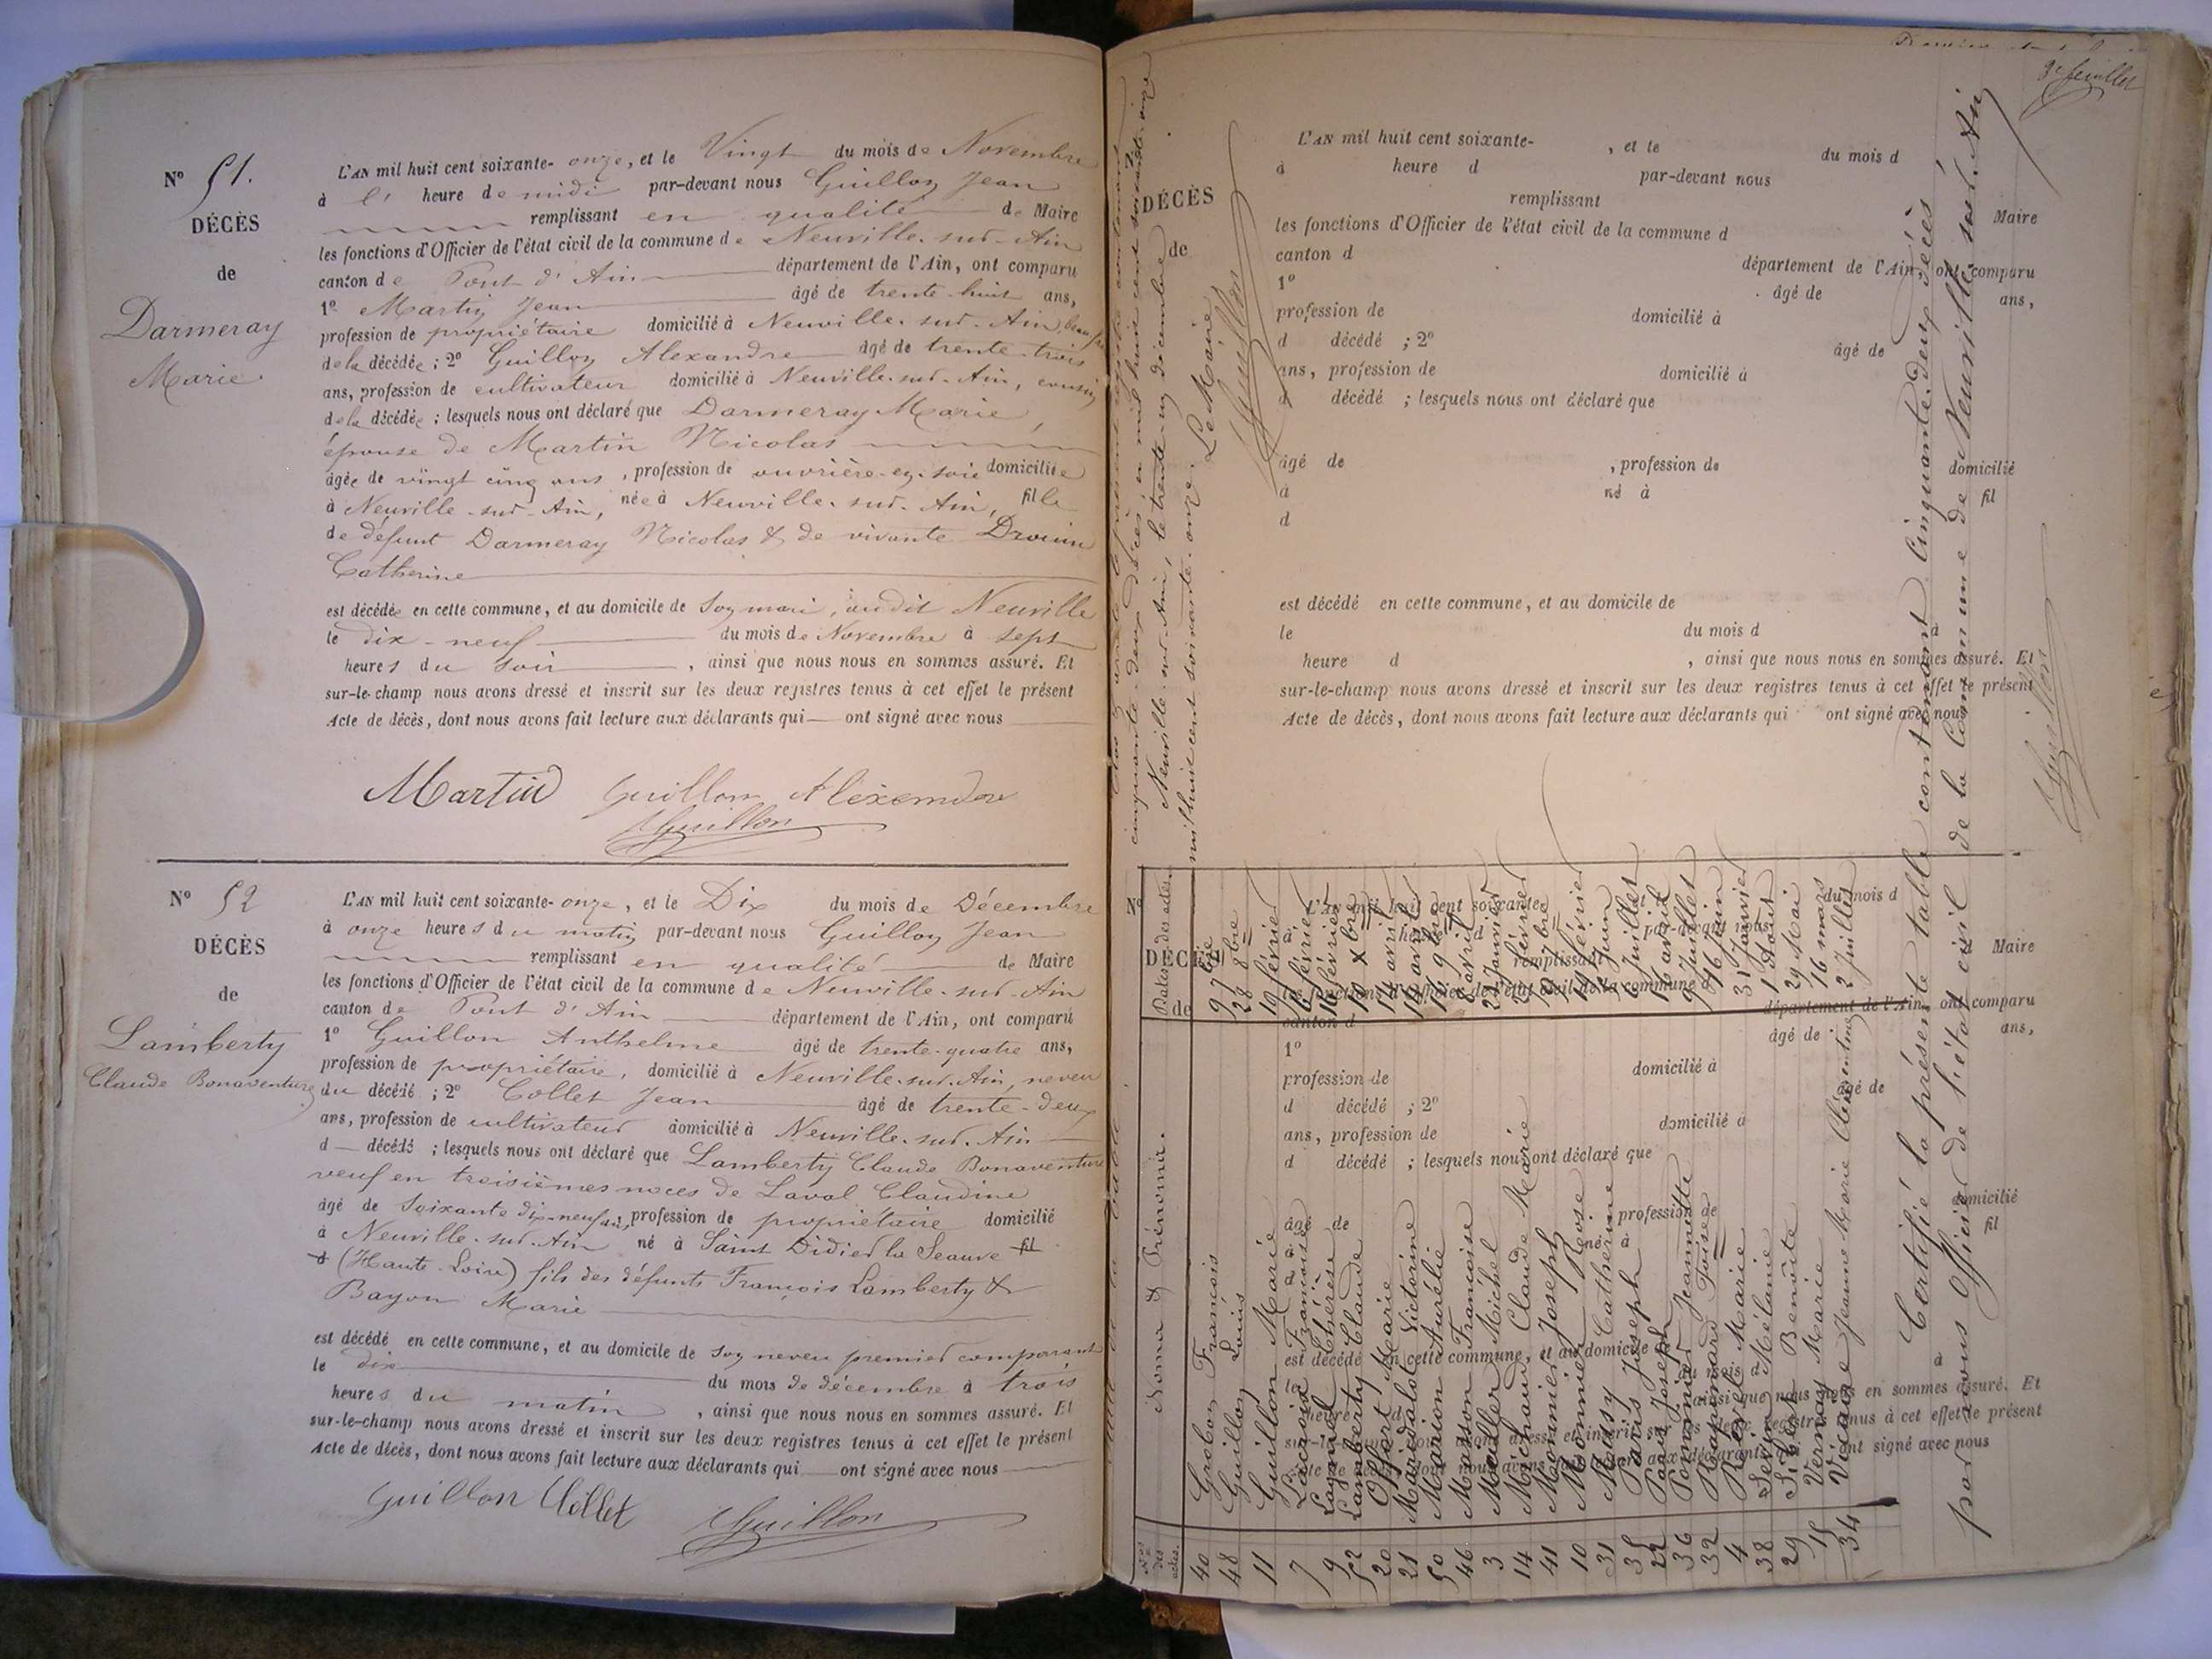 N° 51.
DÉCÈS
de
Darmeray
Marie
L'AN mil huit cent soixante- onze, et le Vingt du mois de Novembre
à l' heure de midi par-devant nous Guillon Jean
remplissant en qualité de Maire
les fonctions d'Officier de l'état civil de la commune de Neuville-sur-Ain
canton de Pont d'Ain département de l'Ain, ont comparu
1° Martin Jean âgé de trente huit ans,
profession de propriétaire domicilié à Neuville-sur-Ain,
de la décédée ; 2° Guillon Alexandre âgé de trente-trois
ans, profession de cultivateur domicilié à Neuville-sur-Ain, cousin
de la décédée ; lesquels nous ont déclaré que Darmeray Marie,
épouse de Martin Nicolas
âgée de vingt cinq ans, profession de ouvrière-en-soie domiciliée
à Neuville-sur-Ain, née à Neuville-sur-Ain, fille
de défunt Darmeray Nicolas & de vivante Drouin
Catherine
est décédée en cette commune, et au domicile de son mari, au dit Neuville
le dix-neuf du mois de Novembre à sept
heures du soir, ainsi que nous nous en sommes assuré. Et
sur-le-champ nous avons dressé et inscrit sur les deux registres tenus à cet effet le présent
Acte de décès, dont nous avons fait lecture aux déclarants qui ont signé avec nous
Martin Guillon Alexendre
Guillon
N° 52
DÉCÈS
de
Lamberty
Claude Bonaventure
L'AN mil huit cent soixante- onze, et le Dix du mois de Décembre
à onze heures du matin par-devant nous Guillon Jean
remplissant en qualité de Maire
les fonctions d'Officier de l'état civil de la commune de Neuville-sur-Ain
canton de Pont d'Ain département de l'Ain, ont comparu
1° Guillon Anthelme âgé de trente-quatre ans,
profession de propriétaire, domicilié à Neuville-sur-Ain, neveu
du décédé ; 2° Collet Jean âgé de trente-deux
ans, profession de cultivateur domicilié à Neuville-sur-Ain
d décédé ; lesquels nous ont déclaré que Lamberty Claude Bonaventure
veuf en troisièmes noces de Laval Claudine
âgé de Soixante dix-neuf ans, profession de propriétaire domicilié
à Neuville-sur-Ain né à Saint Didier la Seauve fil
d (Haute-Loire) fils des défunts François Lamberty &
Bayon Marie
est décédé en cette commune, et au domicile de son neveu premier comparant
le dix du mois de décembre à trois
heures du matin, ainsi que nous nous en sommes assuré. Et
sur-le-champ nous avons dressé et inscrit sur les deux registres tenus à cet effet le présent
Acte de décès, dont nous avons fait lecture aux déclarants qui ont signé avec nous
Guillon Collet Guillon
9e feuillet
cinquante-deux décès en mil huit cent soixante-onze
Neuville-sur-Ain, le trente-un décembre
mil huit cent soixante-onze.
Le Maire
Guillon
DÉCÈS
de
L'AN mil huit cent soixante- , et le du mois d
à heure d par-devant nous
remplissant Maire
les fonctions d'Officier de l'état civil de la commune d
canton d département de l'Ain, ont comparu
1° âgé de ans,
profession de domicilié à
d décédé ; 2° âgé de
ans, profession de domicilié à
d décédé ; lesquels nous ont déclaré que
âgé de , profession de domicilié
à né à fil
d
est décédé en cette commune, et au domicile de
le du mois d à
heure d , ainsi que nous nous en sommes assuré. Et
sur-le-champ nous avons dressé et inscrit sur les deux registres tenus à cet effet le présent
Acte de décès, dont nous avons fait lecture aux déclarants qui ont signé avec nous
N°
DÉCÈS
de
L'AN mil huit cent soixante- du mois d
à heure d par-devant nous
remplissant Maire
les fonctions d'Officier de l'état civil de la commune d
canton d département de l'Ain, ont comparu
1° âgé de ans,
profession de domicilié à
d décédé ; 2° âgé de
ans, profession de domicilié à
d décédé ; lesquels nous ont déclaré que
âgé de profession de domicilié
né à fil
est décédé en cette commune, et au domicile de
du mois d à
ainsi que nous nous en sommes assuré. Et
registres tenus à cet effet le présent
ont signé avec nous
Nos des actes. Noms & Prénoms. Dates des actes
40 Grobon François 9 7bre
48 Guillon Louis 28 8bre
11 Guillon Marie 19 février
7 Lacroix Françoise février
9 Thérèse février
52 Lamberty Claude 10 Xbre
20 Marie 14 avril
21 Maridalot Victorine avril
50 Marion Aurélie 16 9bre
46 Masson Françoise
3 Michel Janvier
14 Michaud Claude Marie février
41 Monnier Joseph 19 7bre
10 Monnier Rose février
31 Catherine Juin
35 Paris Joseph 6 Juillet
22 Paris Joseph 16 avril
36 Pommier Jeannette 9 Juillet
32 16 Juin
4 Marie 31 Janvier
38 Mélanie 1 Août
29 Benoîte 29 Mai
15 Vernay Marie 16 mars
34 Jeanne Marie Clémentine 2 Juillet
Certifié la présente table contenant Cinquante-deux décès
par nous Officier de l'état civil de la Commune de Neuville-sur-Ain
Guillon